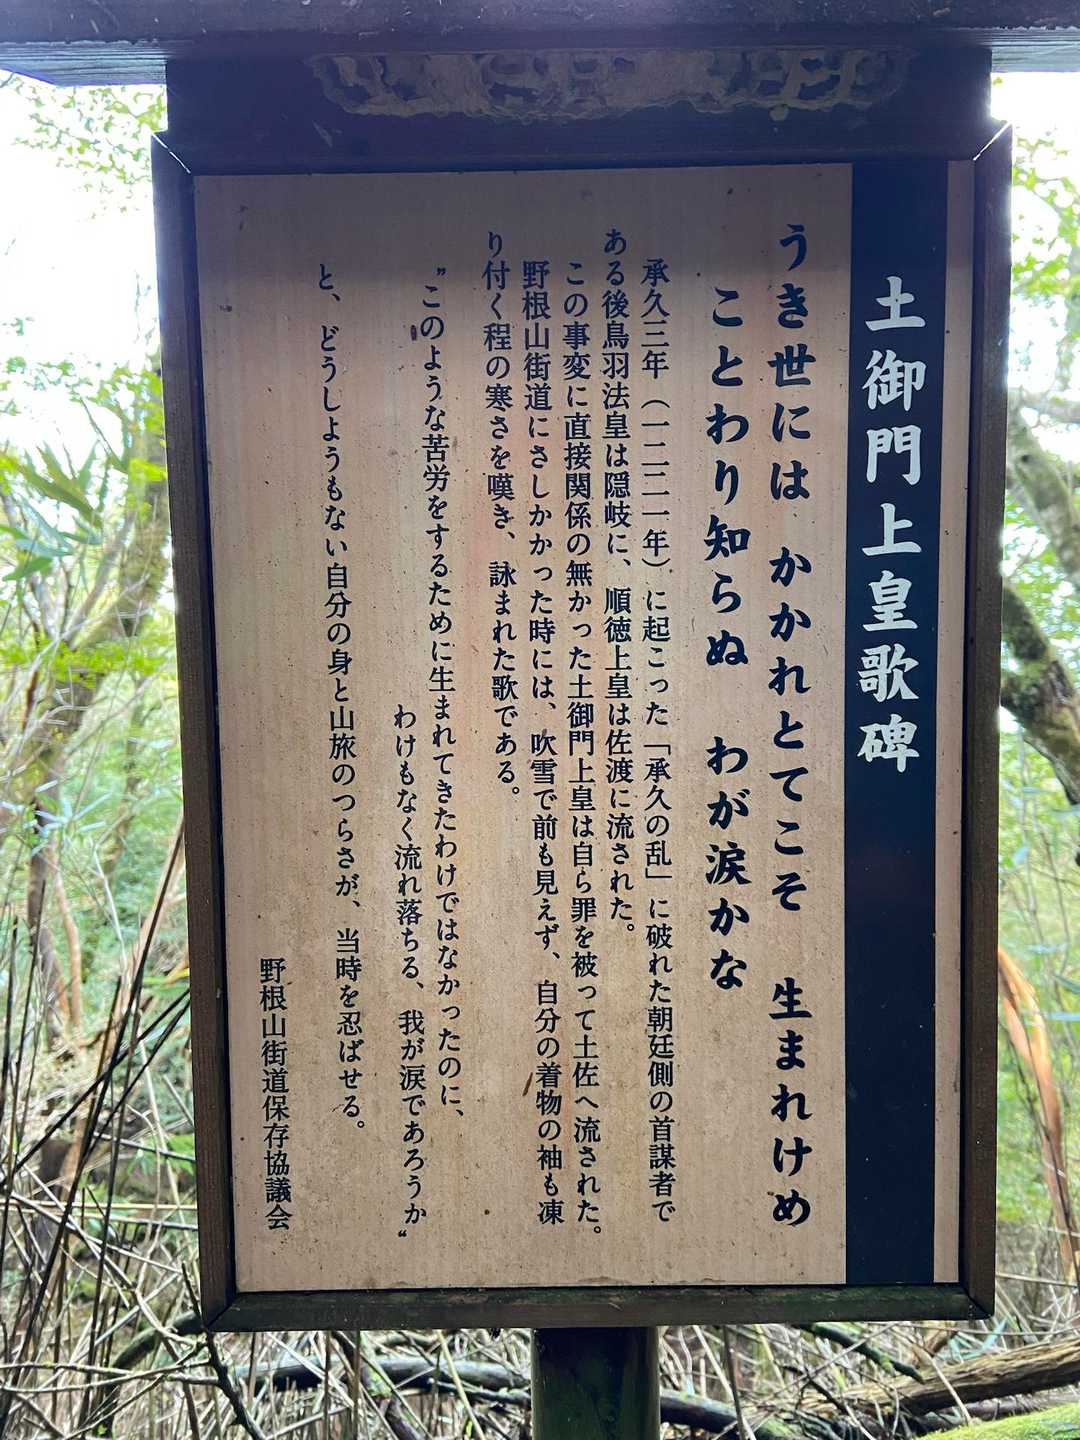 土御門上皇歌碑
うき世には かかれとてこそ 生まれけめ
ことわり知らぬ わが涙かな
承久三年（一二二一年）に起こった「承久の乱」に破れた朝廷側の首謀者で
ある後鳥羽法皇は隠岐に、順徳上皇は佐渡に流された。
この事変に直接関係の無かった土御門上皇は自ら罪を被って土佐へ流された。
野根山街道にさしかかった時には、吹雪で前も見えず、自分の着物の袖も凍
り付く程の寒さを嘆き、詠まれた歌である。
"このような苦労をするために生まれてきたわけではなかったのに、
わけもなく流れ落ちる、我が涙であろうか"
と、どうしようもない自分の身と山旅のつらさが、当時を忍ばせる。
野根山街道保存協議会